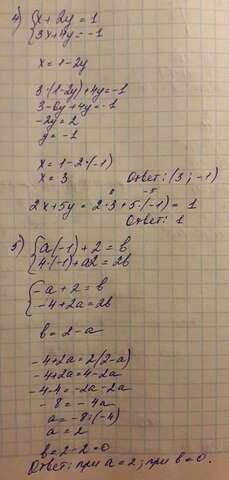 4) {x + 2y = 1
{3x + 4y = -1
x = 1 - 2y
3·(1-2y) + 4y = -1
3 - 6y + 4y = -1
-2y = 2
y = -1
x = 1 - 2·(-1)
x = 3 Ответ: (3; -1)
6 -5
2x + 5y = 2·3 + 5·(-1) = 1
Ответ: 1
5) {a(-1) + 2 = b
{4·(-1) + a2 = 2b
{-a + 2 = b
{-4 + 2a = 2b
b = 2 - a
-4 + 2a = 2(2-a)
-4 + 2a = 4 - 2a
-4 - 4 = -2a - 2a
-8 = -4a
a = -8 : (-4)
a = 2
b = 2 - 2 = 0
Ответ: при a = 2; при b = 0.